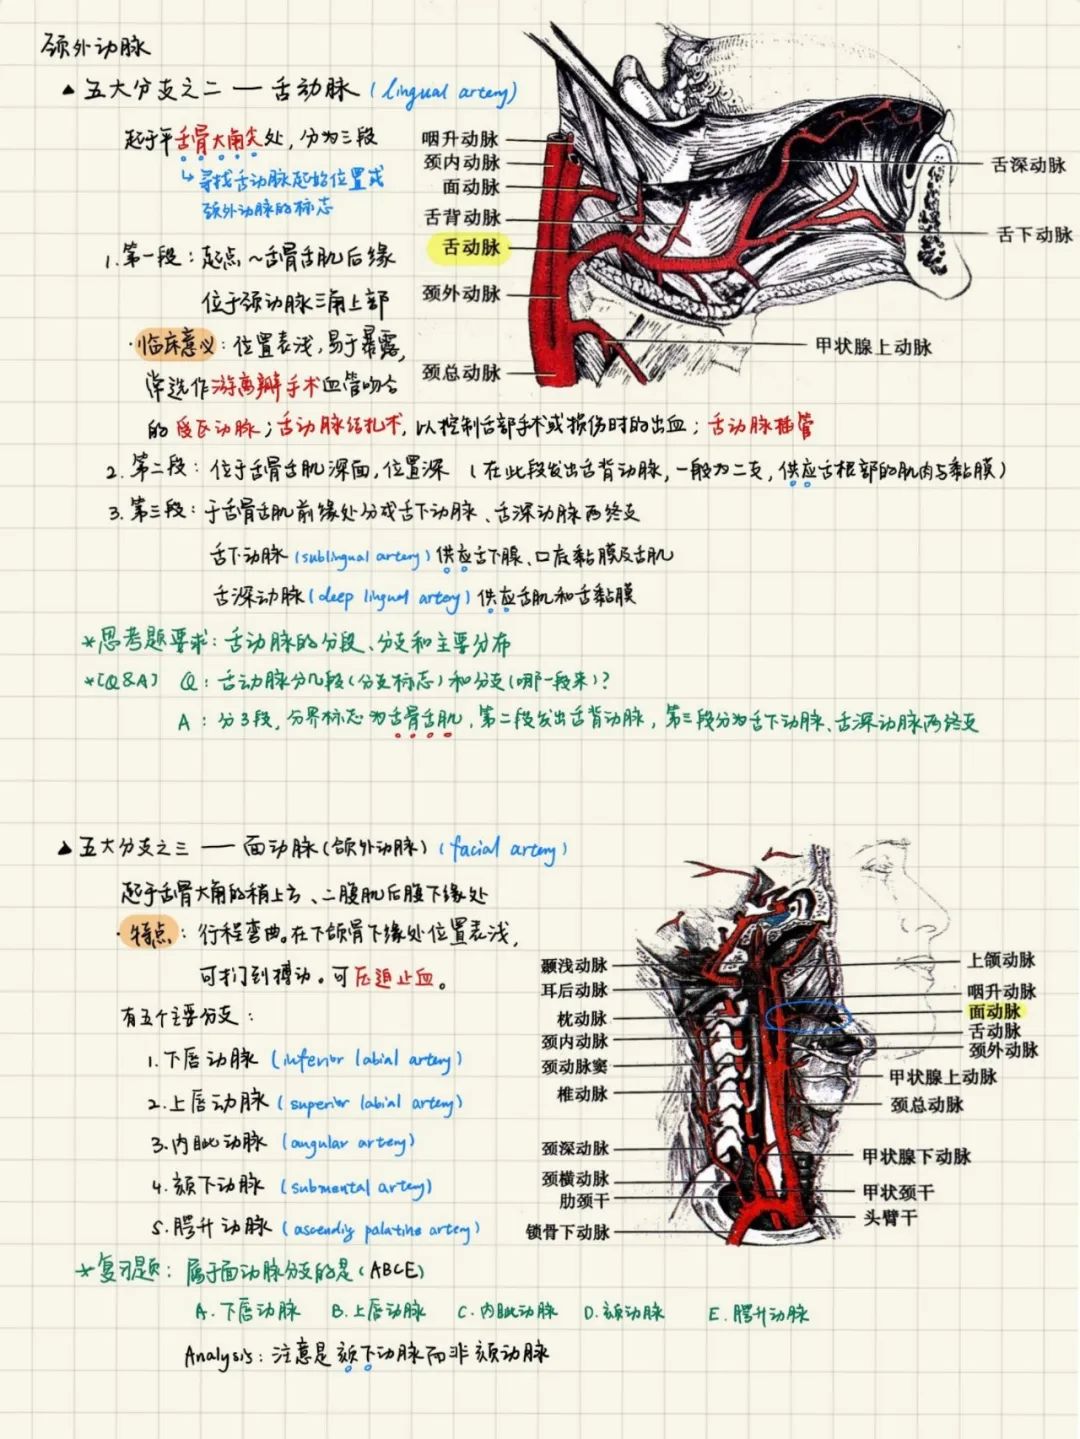 颈外动脉
▲ 五大分支之二 — 舌动脉 (lingual artery)
起于平舌骨大角尖处，分为三段
↳ 寻找舌动脉起始位置或
颈外动脉的标志
1. 第一段：起点～舌骨舌肌后缘
位于颈动脉三角上部
·临床意义：位置表浅，易于暴露，
常选作游离瓣手术血管吻合
的受区动脉；舌动脉结扎术，以控制舌部手术或损伤时的出血；舌动脉插管
2. 第二段：位于舌骨舌肌深面，位置深（在此段发出舌背动脉，一般为二支，供应舌根部的肌肉与黏膜）
3. 第三段：于舌骨舌肌前缘处分成舌下动脉、舌深动脉两终支
舌下动脉 (sublingual artery) 供应舌下腺、口底黏膜及舌肌
舌深动脉 (deep lingual artery) 供应舌肌和舌黏膜
*思考题要求：舌动脉的分段、分支和主要分布
*[Q&A] Q：舌动脉分几段(分支标志)和分支(哪一段来)？
A：分3段，分界标志为舌骨舌肌，第二段发出舌背动脉，第三段分为舌下动脉、舌深动脉两终支
咽升动脉
颈内动脉
面动脉
舌背动脉
舌动脉
颈外动脉
颈总动脉
舌深动脉
舌下动脉
甲状腺上动脉
▲ 五大分支之三 — 面动脉(颌外动脉) (facial artery)
起于舌骨大角的稍上方、二腹肌后腹下缘处
·特点：行程弯曲。在下颌骨下缘处位置表浅，
可扪到搏动。可压迫止血。
有五个主要分支：
1. 下唇动脉 (inferior labial artery)
2. 上唇动脉 (superior labial artery)
3. 内眦动脉 (angular artery)
4. 颏下动脉 (submental artery)
5. 腭升动脉 (ascendig palatine artery)
*复习题：属于面动脉分支的是(ABCE)
A. 下唇动脉 B. 上唇动脉 C. 内眦动脉 D. 颏动脉 E. 腭升动脉
Analysis：注意是颏下动脉而非颏动脉
颞浅动脉
耳后动脉
枕动脉
颈内动脉
颈动脉窦
椎动脉
颈深动脉
颈横动脉
肋颈干
锁骨下动脉
上颌动脉
咽升动脉
面动脉
舌动脉
颈外动脉
甲状腺上动脉
颈总动脉
甲状腺下动脉
甲状颈干
头臂干